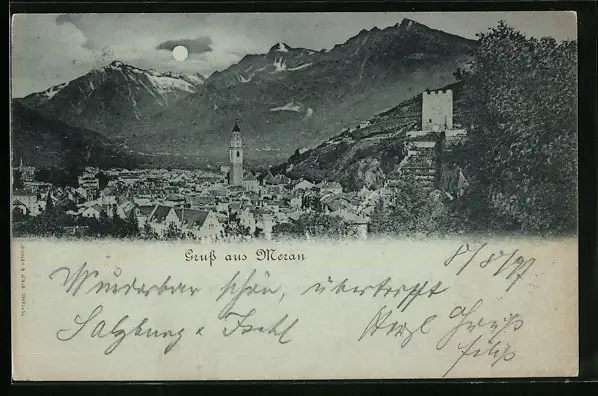 Gruß aus Meran
8/8/97
Wunderbar schön, übertrifft
Salzburg u Ischl
Herzl Gruß